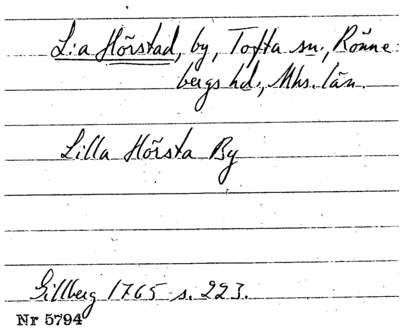 L:a Hörstad, by, Tofta sn., Rönne-
bergs hd., Mhs. län.
Lilla Hörsta By
Gillberg 1765 s. 223.
Nr 5794